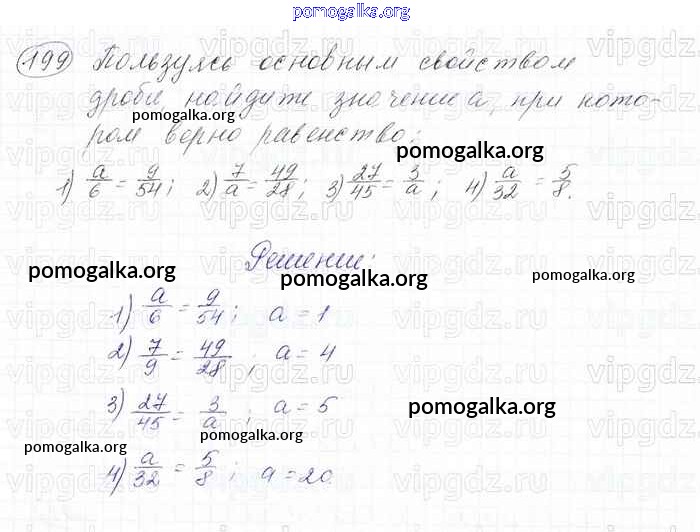 pomogalka.org
199 Пользуясь основным свойством
дроби, найдите значение a, при кото-
pomogalka.org
ром верно равенство:
pomogalka.org
1) a/6 = 9/54; 2) 7/a = 49/28; 3) 27/45 = 3/a; 4) a/32 = 5/8.
Решение:
pomogalka.org pomogalka.org pomogalka.org
1) a/6 = 9/54; a = 1
2) 7/9 = 49/28; a = 4
3) 27/45 = 3/a; a = 5
pomogalka.org
pomogalka.org pomogalka.org
4) a/32 = 5/8; a = 20